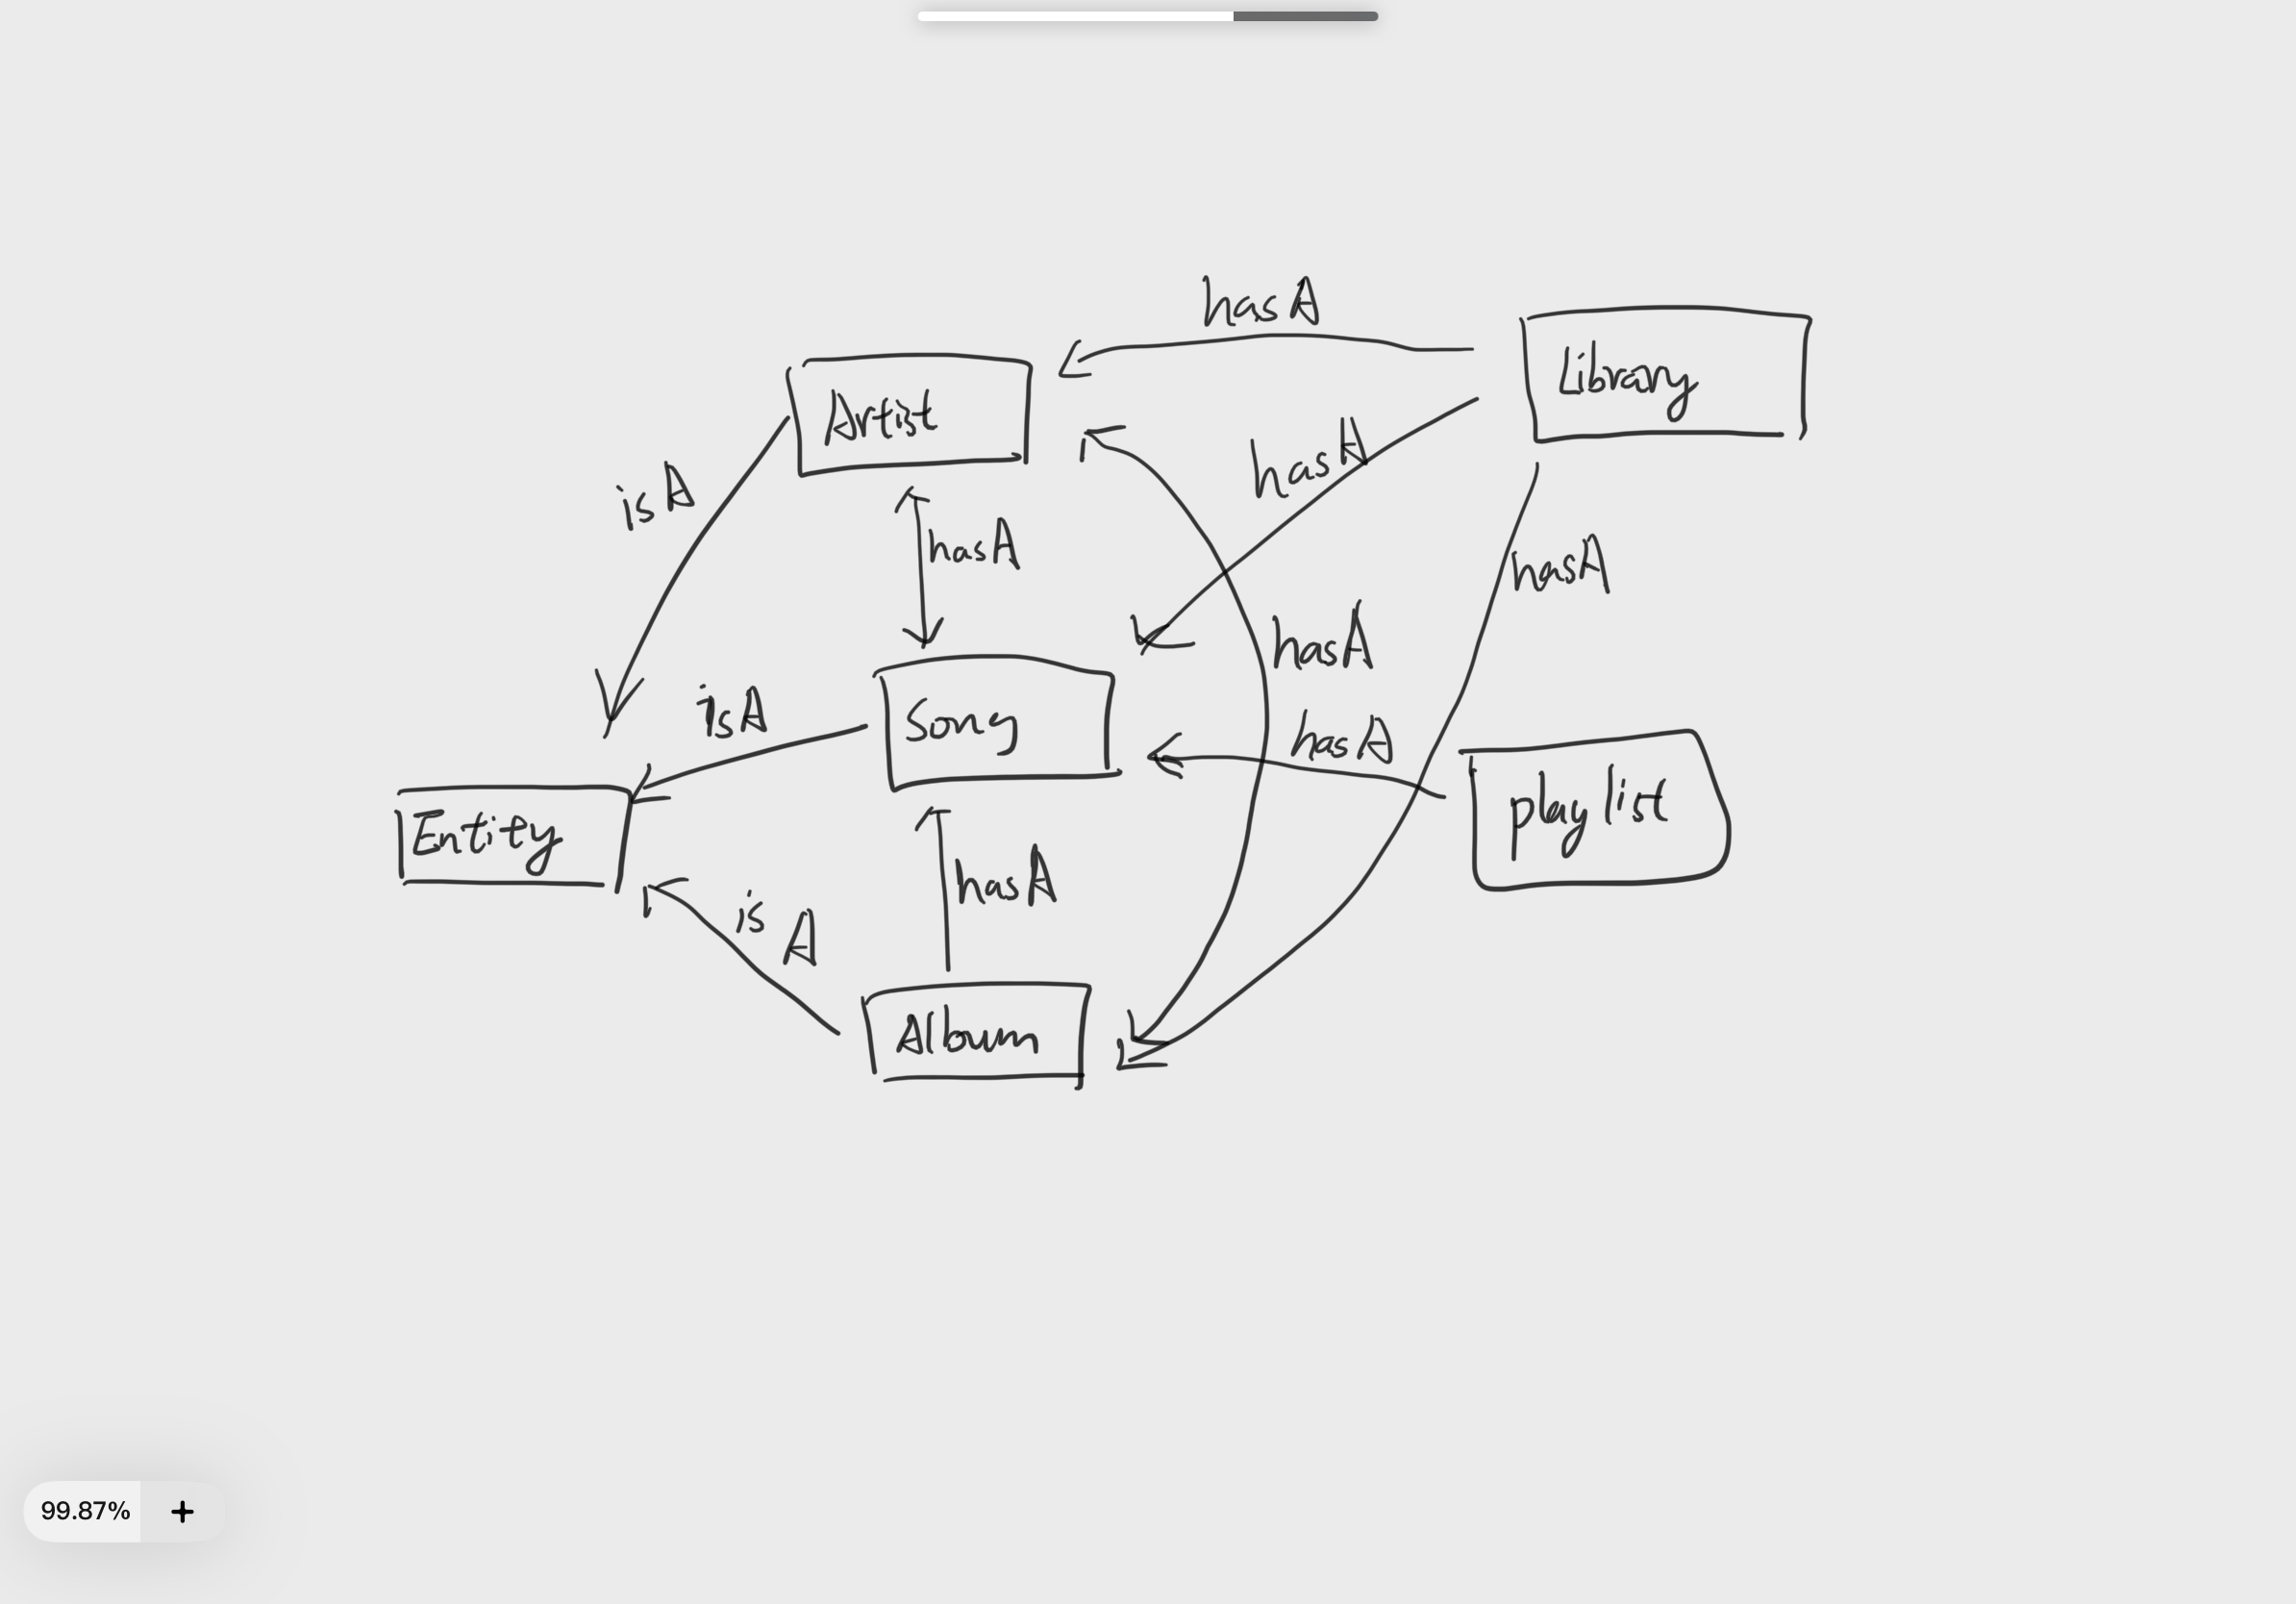 hasA
Library
Artist
hasA
isA
hasA
hasA
hasA
isA
Song
hasA
playlist
Entity
hasA
isA
Album
99.87% +